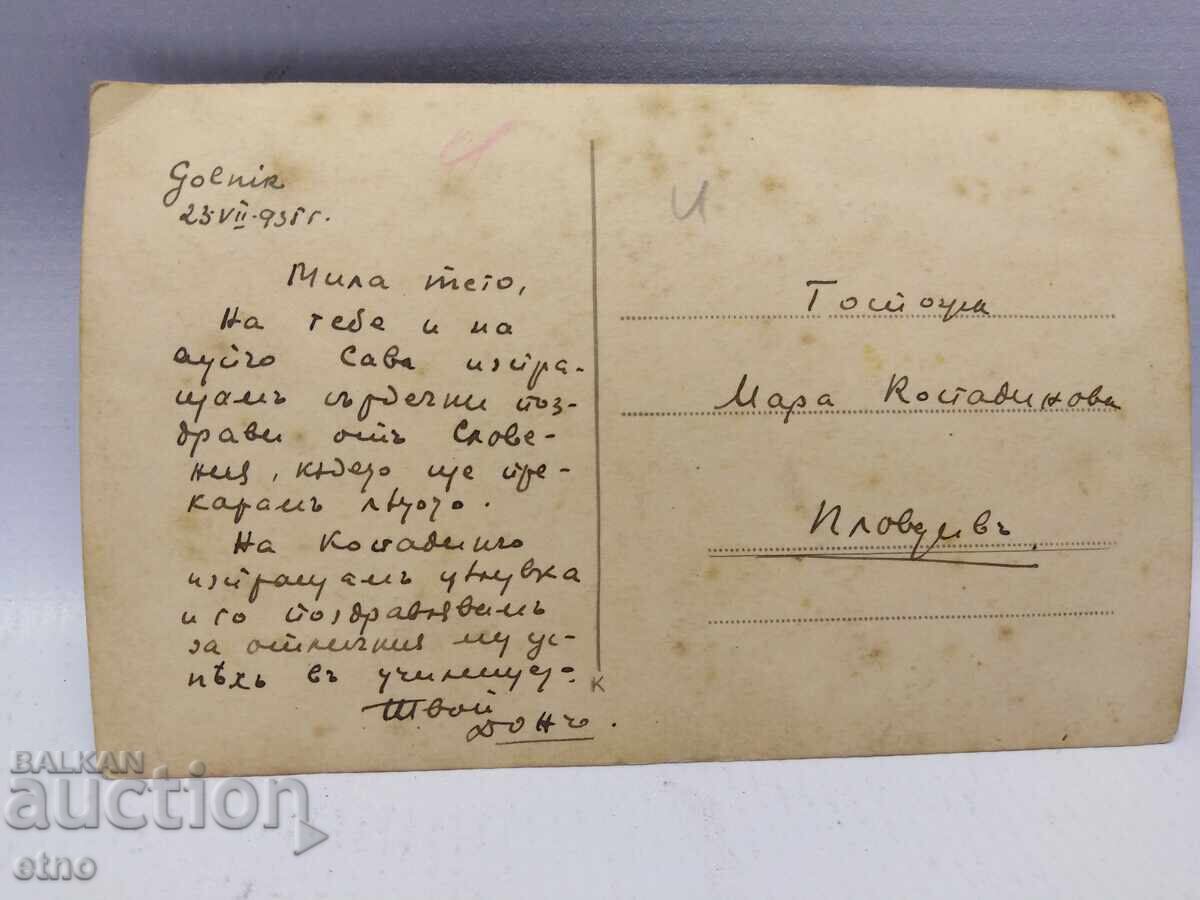 Golnik
23.VII.935 г.
Мила тето,
На тебе и на
вуйчо Сава изпра-
щамъ сърдечни поз-
драви отъ Слове-
ния, където ще пре-
карамъ лѣтото.
На Костадинчо
изпращамъ цѣлувка
и го поздравявамъ
за отличния му ус-
пѣхъ въ училище.
Твой
Дончо.
И
Госпожа
Мара Костадинова
Пловдивъ
К
BALKAN
auction
etno